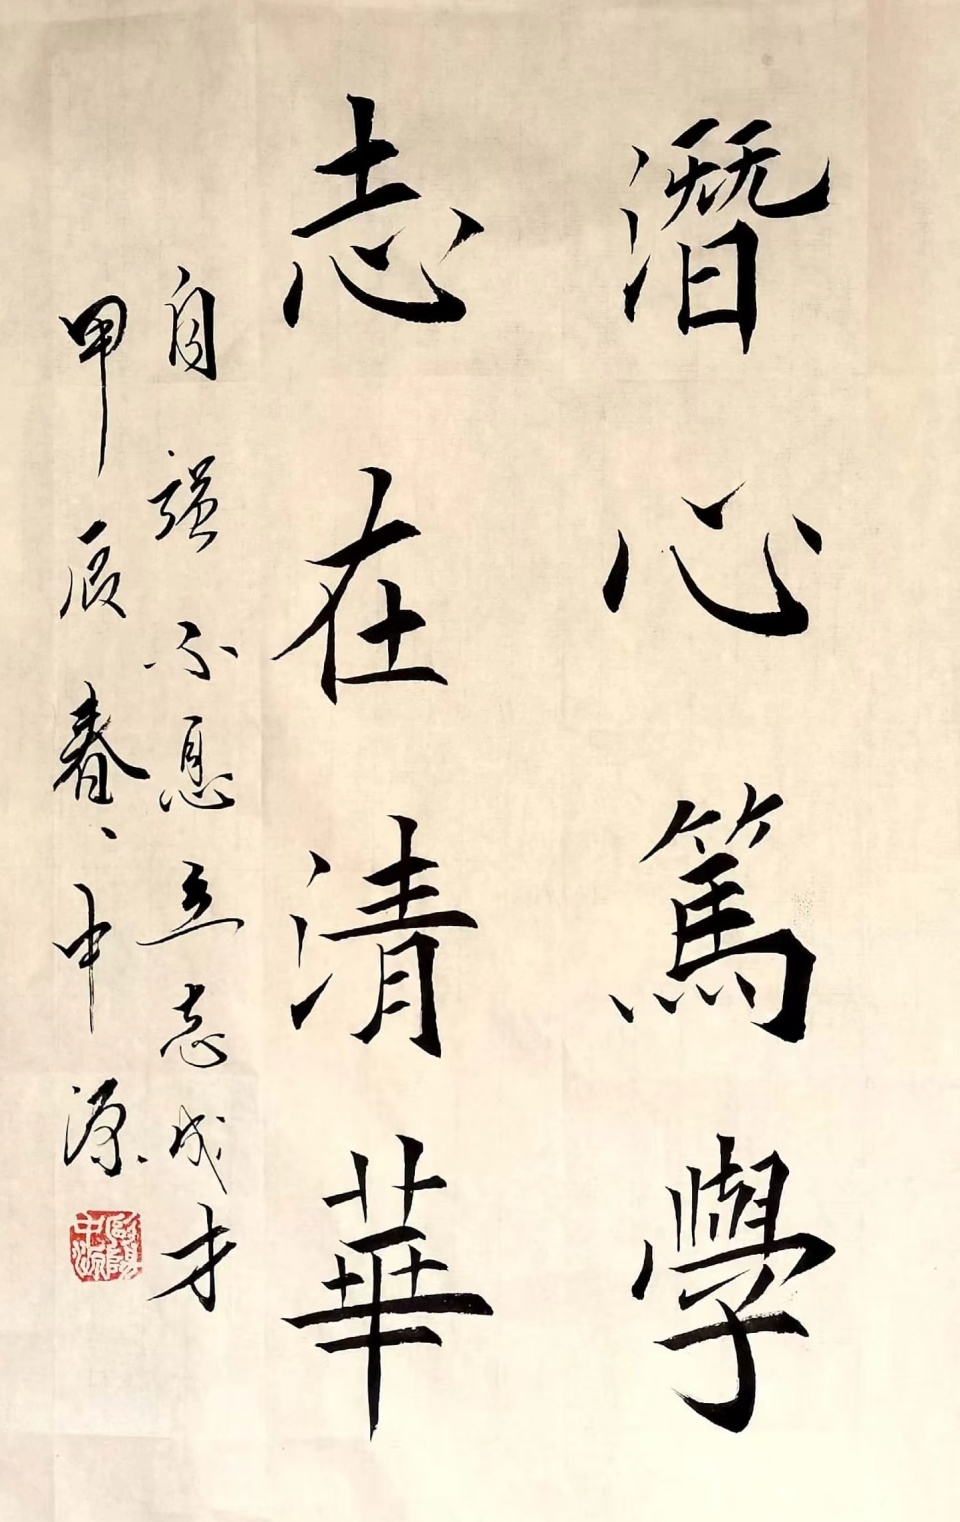 潛心篤學
志在清華
自強不息立志成才
甲辰春、中源
歐陽中源